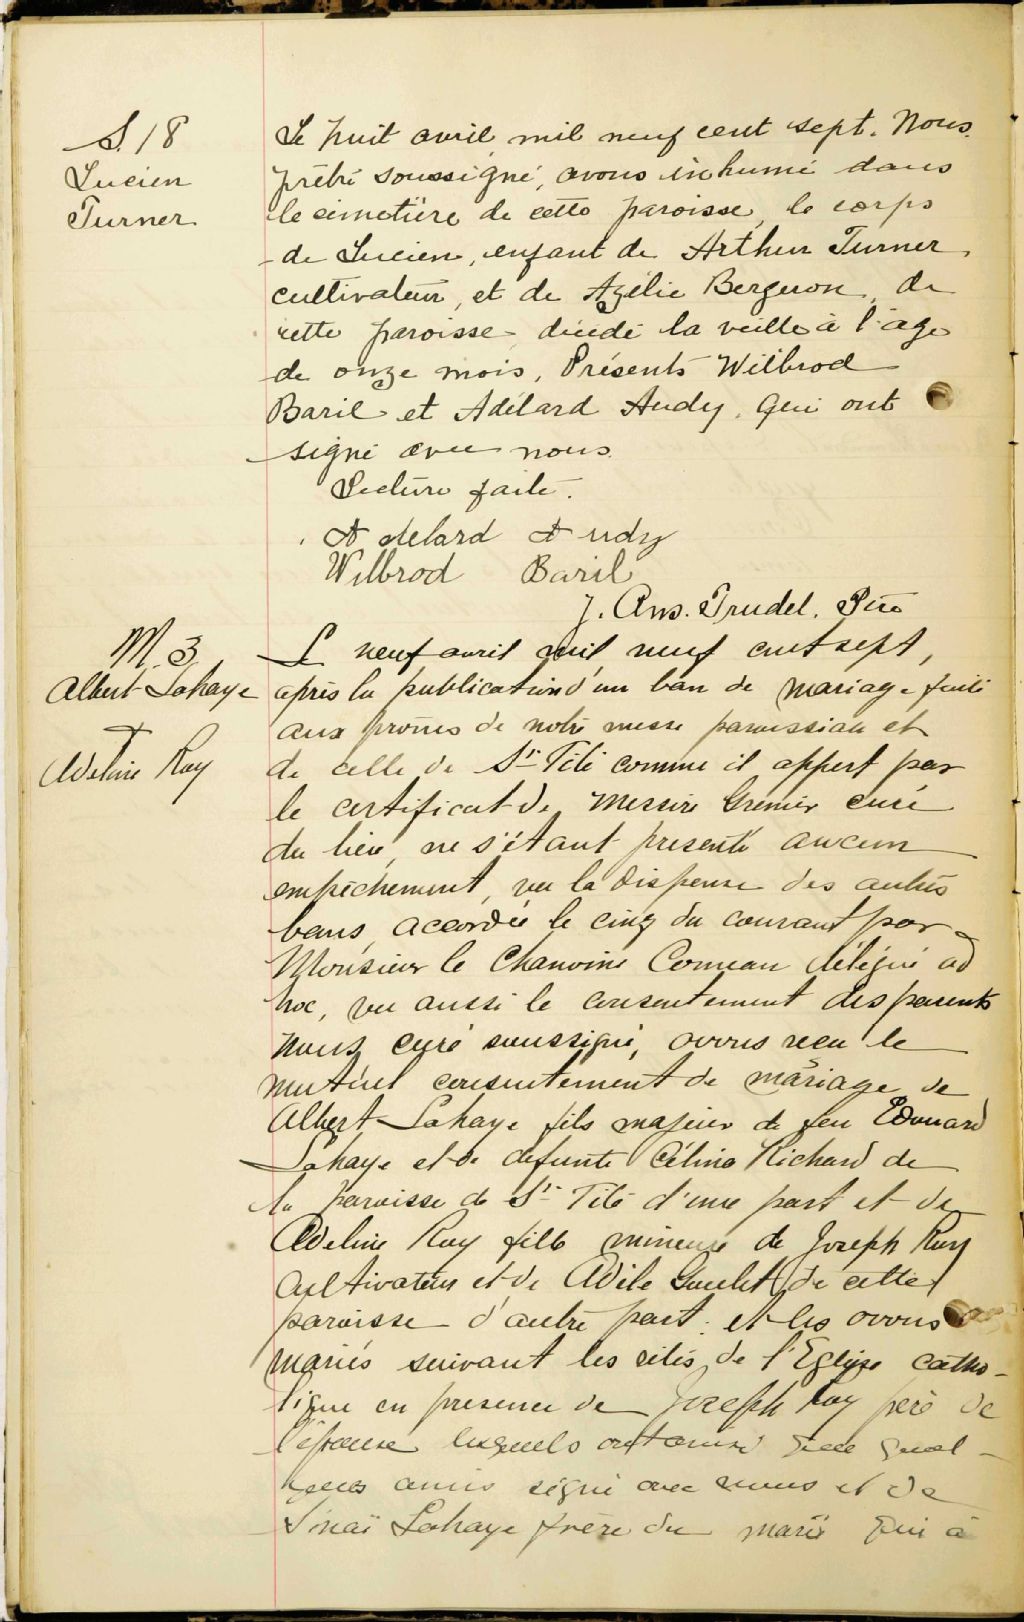 S. 18
Lucien
Turner
Le huit avril mil neuf cent sept. Nous
prêtre soussigné, avons inhumé dans
le cimetière de cette paroisse, le corps
de Lucien, enfant de Arthur Turner,
cultivateur, et de Azélie Bergeron, de
cette paroisse décédé la veille à l'âge
de onze mois, Présents Wilbrod
Baril et Adélard Audy, qui ont
signé avec nous.
Lecture faite.
Adelard Audy
Wilbrod Baril
J. Ans. Trudel. Ptre
M. 3
Albert Lahaye
+
Adeline Roy
Le neuf avril mil neuf cent sept,
après la publication d'un ban de mariage faite
aux prônes de notre messe paroissiale et
de celle de St-Tite comme il appert par
le certificat de Messire Grenier curé
du lieu, ne s'étant présenté aucun
empêchement, vu la dispense des autres
bans accordée le cinq du courant par
Monsieur le Chanoine Comeau délégué ad
hoc, vu aussi le consentement des parents
nous curé soussigné, avons reçu le
mutuel consentement de mariage de
Albert Lahaye fils majeur de feu Edouard
Lahaye et de défunte Célina Richard de
la paroisse de St-Tite d'une part et de
Adeline Roy fille mineure de Joseph Roy
cultivateur et de Adèle Goulet de cette
paroisse d'autre part: et les avons
mariés suivant les rites de l'Eglise catho-
lique en présence de Joseph Roy père de
l'épouse lesquels ont ainsi que quel-
ques amis signé avec nous et de
Sinaï Lahaye frère du marié qui a